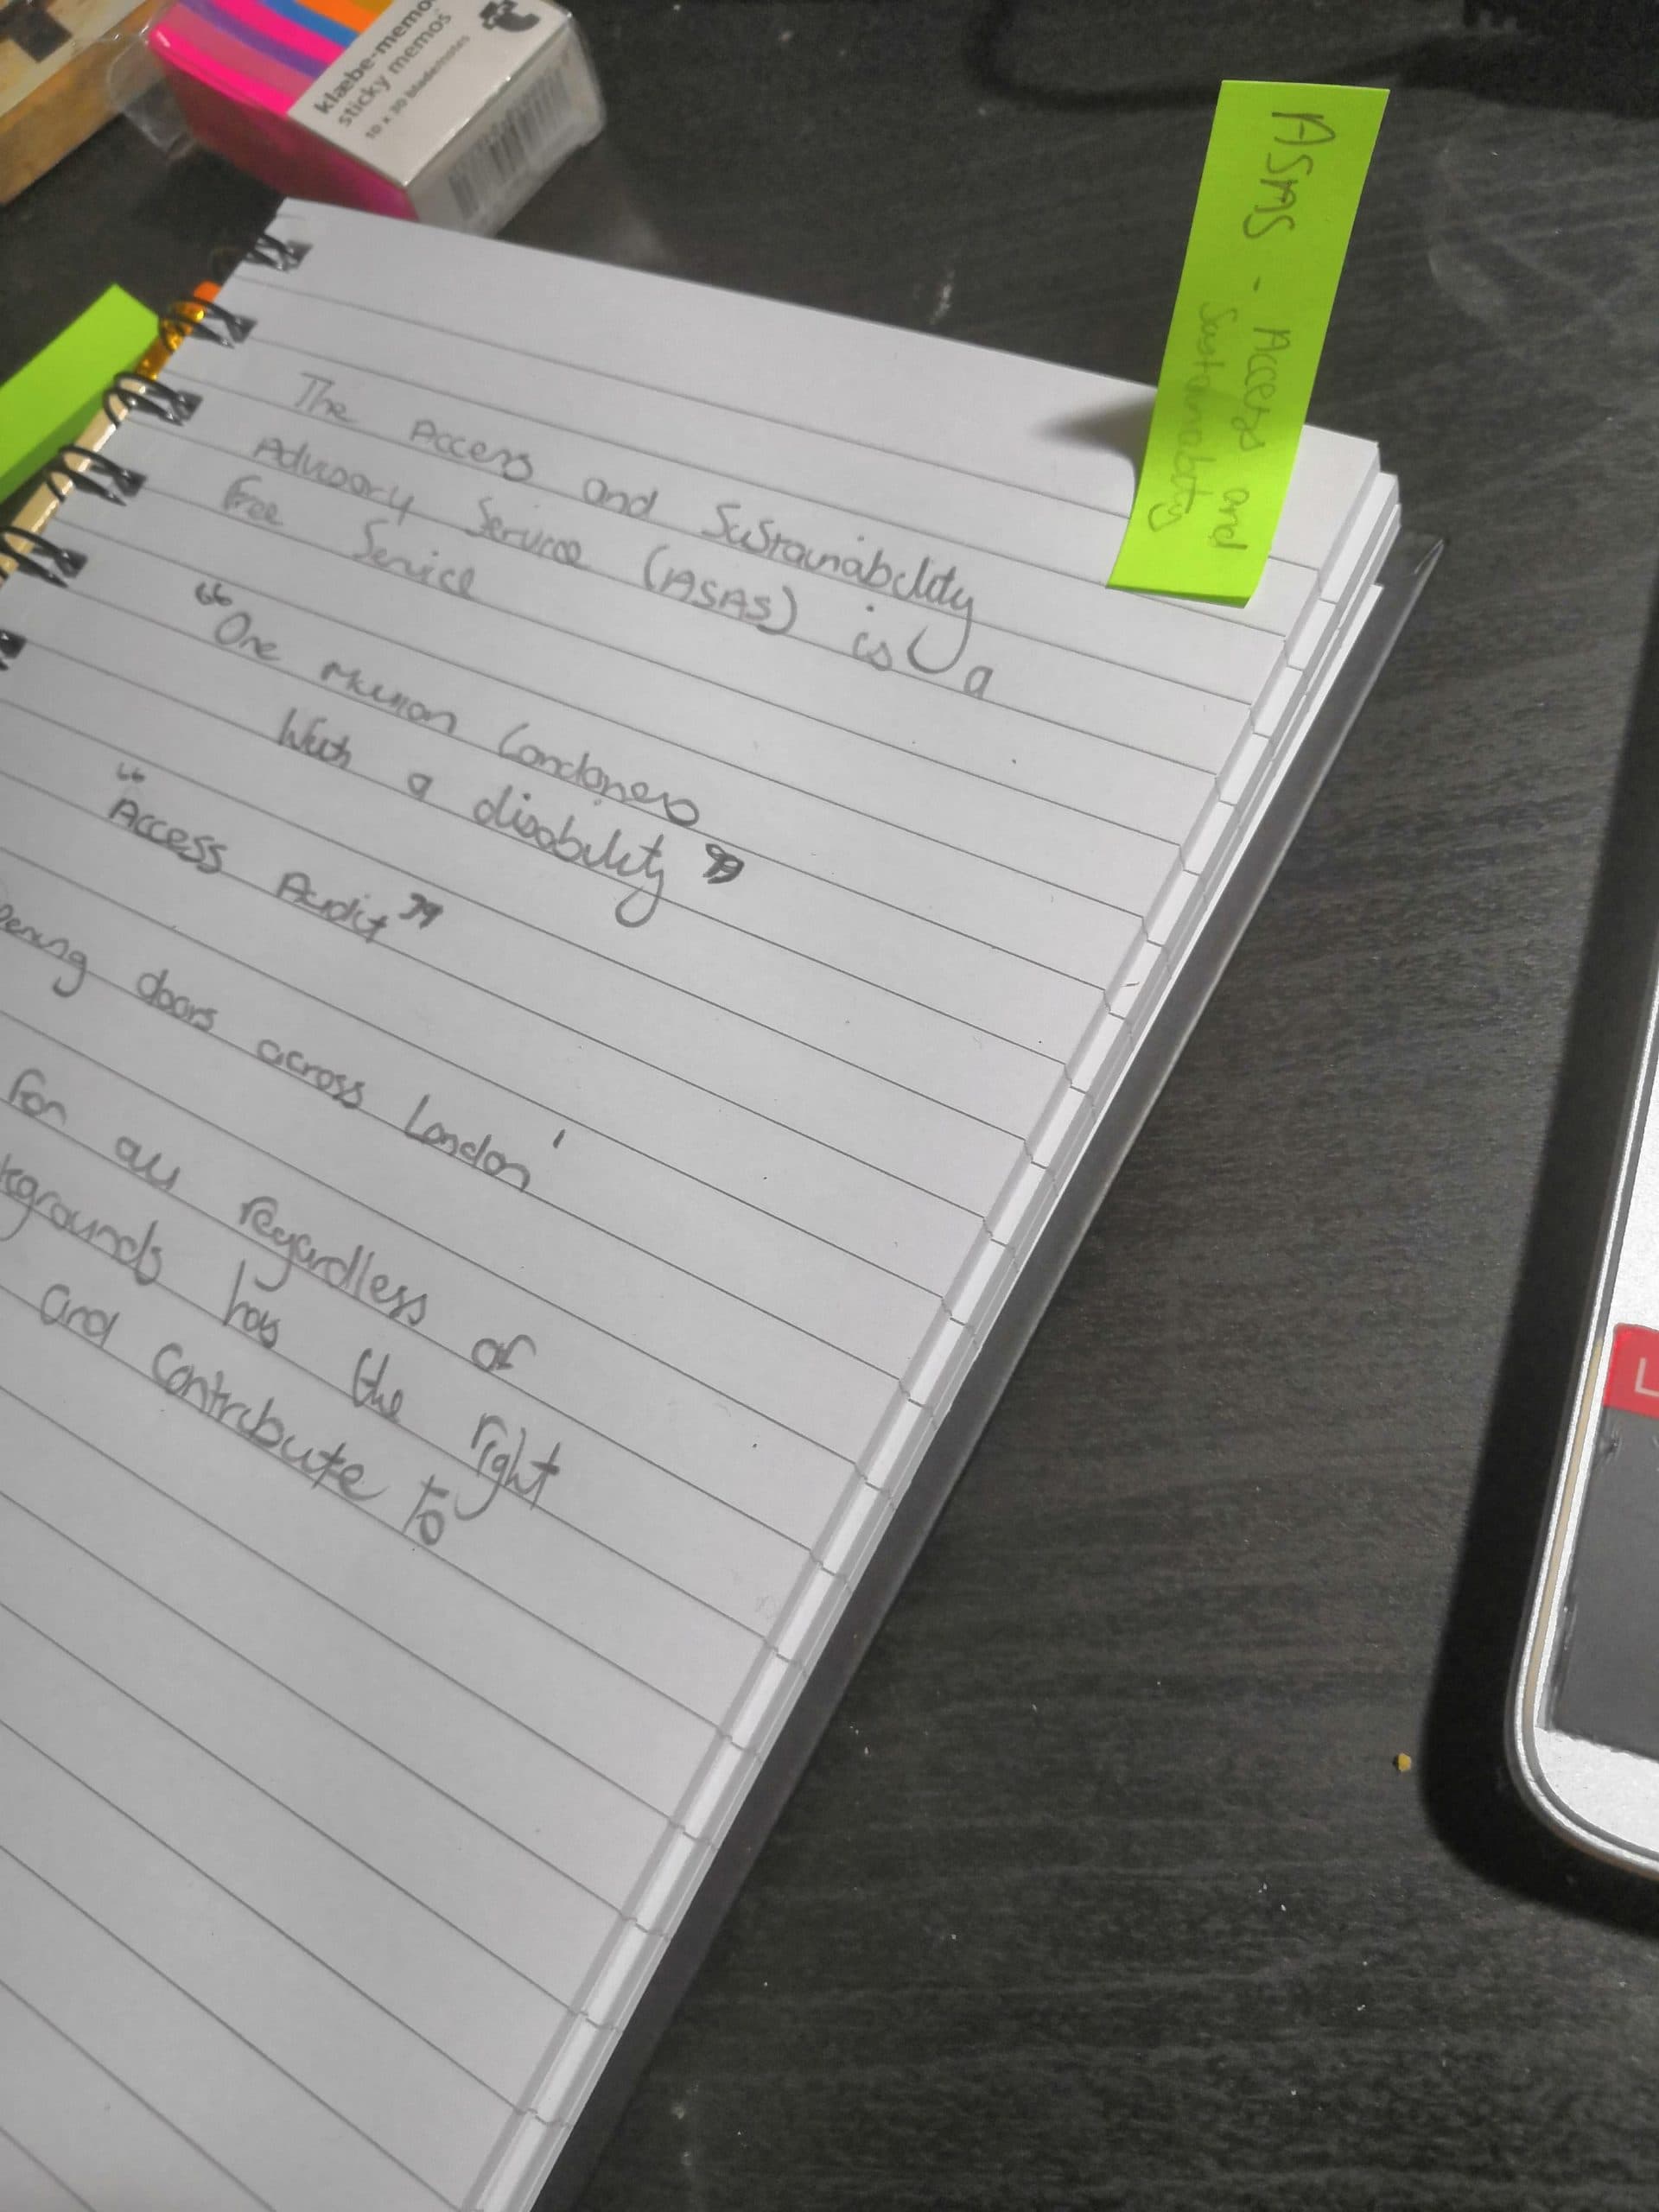 klæbe-memo
sticky memos
10 x 30 blade/notes
ASAS - Access and
Sustainability
The Access and Sustainability
Advisory Service (ASAS) is a
Free Service
“One Million Londoners
With a disability”
“Access Audit”
doors across London'
For all regardless of
has the right
and contribute to
L